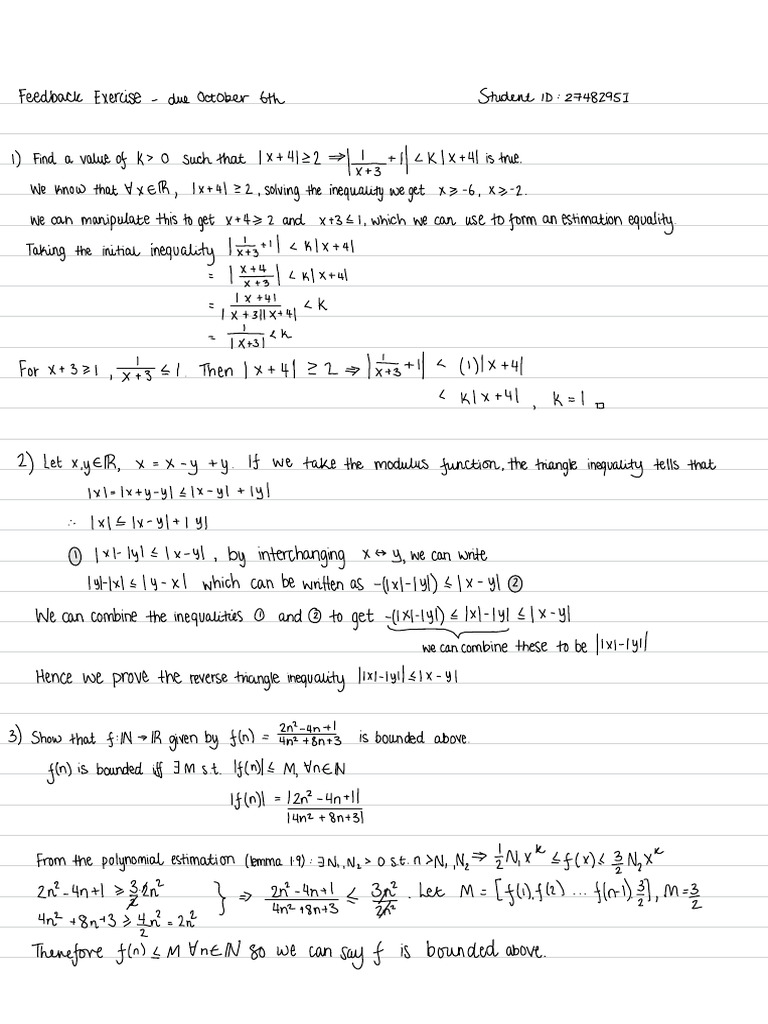 Feedback Exercise - due October 6th Student ID: 27482951
1) Find a value of K > 0 such that |x+4| ≥ 2 ⇒ |1/(x+3) + 1| < K|x+4| is true.
We know that ∀x∈ℝ, |x+4| ≥ 2, solving the inequality we get x ≥ -6, x ≥ -2.
We can manipulate this to get x+4 ≥ 2 and x+3 ≤ 1, which we can use to form an estimation equality.
Taking the initial inequality |1/(x+3) + 1| < K|x+4|
= |(x+4)/(x+3)| < K|x+4|
= |x+4|/(|x+3||x+4|) < K
= 1/|x+3| < K
For x+3 ≥ 1, 1/(x+3) ≤ 1. Then |x+4| ≥ 2 ⇒ |1/(x+3) + 1| < (1)|x+4|
< K|x+4|, K = 1 □
2) Let x,y∈ℝ, x = x - y + y. If we take the modulus function, the triangle inequality tells that
|x| = |x+y-y| ≤ |x-y| + |y|
∴ |x| ≤ |x-y| + |y|
① |x|-|y| ≤ |x-y|, by interchanging x ↔ y, we can write
|y|-|x| ≤ |y-x| which can be written as -(|x|-|y|) ≤ |x-y| ②
We can combine the inequalities ① and ② to get -(|x|-|y|) ≤ |x|-|y| ≤ |x-y|
we can combine these to be ||x|-|y||
Hence we prove the reverse triangle inequality ||x|-|y|| ≤ |x-y|
3) Show that f: ℕ → ℝ given by f(n) = (2n²-4n+1)/(4n²+8n+3) is bounded above.
f(n) is bounded iff ∃M s.t. |f(n)| ≤ M, ∀n∈ℕ
|f(n)| = |2n²-4n+1|/|4n²+8n+3|
From the polynomial estimation (lemma 1.9): ∃N₁,N₂ > 0 s.t. n > N₁, N₂ ⇒ 1/2 N₁x^k ≤ f(x) ≤ 3/2 N₂x^k
2n²-4n+1 ≥ 3/2 2n² } ⇒ (2n²-4n+1)/(4n²+8n+3) ≤ 3n²/2n². Let M = [f(1), f(2) ... f(n-1) 3/2], M = 3/2
4n²+8n+3 ≥ 4n²/2 = 2n²
Therefore f(n) ≤ M ∀n∈ℕ so we can say f is bounded above.